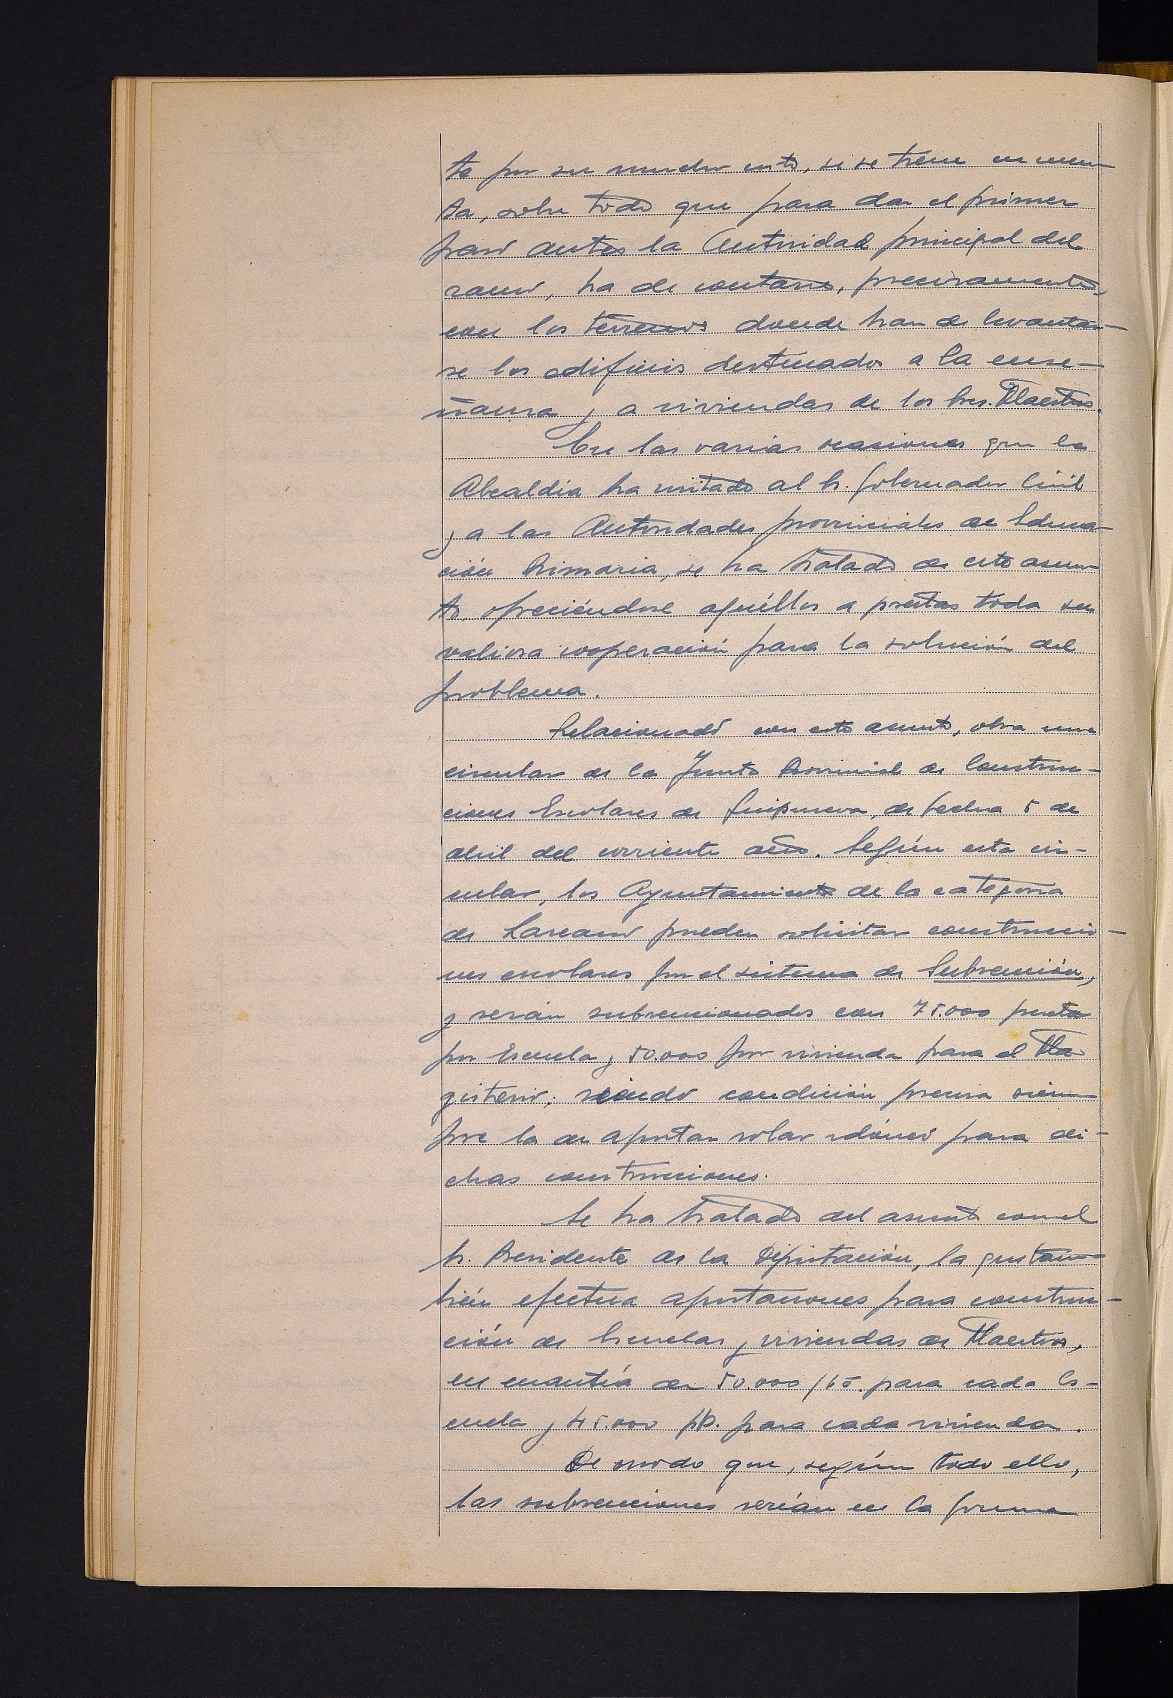 ta por su mucho costo, si se tiene en cuen-
ta, sobre todo que para dar el primer
paso antes la Autoridad principal del
ramo, ha de contarse, precisamente,
con los terrenos donde han de levantar-
se los edificios destinados a la ense-
ñanza y a viviendas de los Sres. Maestros.
En las varias ocasiones que la
Alcaldía ha visitado al Sr. Gobernador Civil
y a las Autoridades provinciales de Educa-
ción Primaria, se ha tratado de este asun-
to, ofreciéndose aquéllos a prestar toda su
valiosa cooperación para la solución del
problema.
Relacionado con este asunto, obra una
circular de la Junta Provincial de Construc-
ciones Escolares de Guipúzcoa, de fecha 5 de
abril del corriente año. Según esta cir-
cular, los Ayuntamientos de la categoría
de Lazcano pueden solicitar construccio-
nes escolares por el sistema de Subvención,
y serán subvencionados con 75.000 pesetas
por Escuela y 50.000 por vivienda para el Ma-
gisterio; siendo condición precisa siem-
pre la de aportar solar idóneo para di-
chas construcciones.
Se ha tratado del asunto con el
Sr. Presidente de la Diputación, la que tam-
bién efectúa aportaciones para construc-
ción de Escuelas y viviendas de Maestros,
en cuantía de 50.000 pts. para cada Es-
cuela y 45.000 pts. para cada vivienda.
De modo que, según todo ello,
las subvenciones serían en la forma